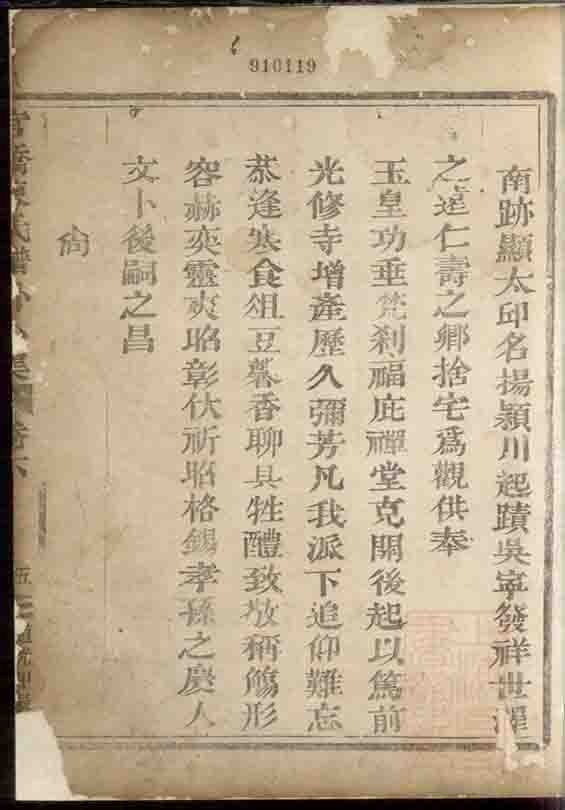 910119
南跡顯太邱名揚潁川起蹟吳寧發祥世澤
之達仁壽之鄉捨宅爲觀供奉
玉皇功垂梵刹福庇禪堂克開後起以篤前
光修寺增產歷久彌芳凡我派下追仰難忘
恭逢寒食俎豆馨香聊具牲醴致敬稱觴形
容赫奕靈爽昭彰伏祈昭格錫孝孫之慶人
文卜後嗣之昌
尙
氏譜
卷六
五